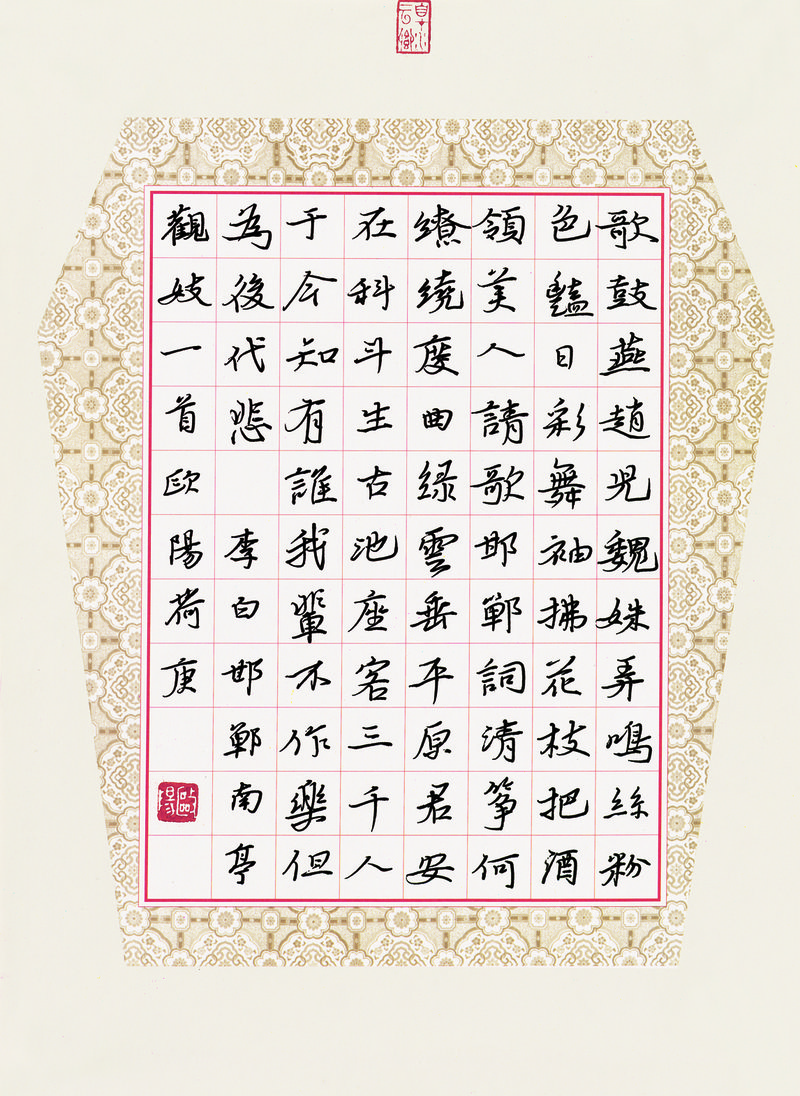 歌鼓燕趙兒魏姝弄鳴絲粉
色豔日彩舞袖拂花枝把酒
領美人請歌邯鄲詞清筝何
繚繞度曲绿雲垂平原君安
在科斗生古池座客三千人
于今知有誰我輩不作樂但
為後代悲 李白邯鄲南亭
觀妓一首欧陽荷庚
歐陽